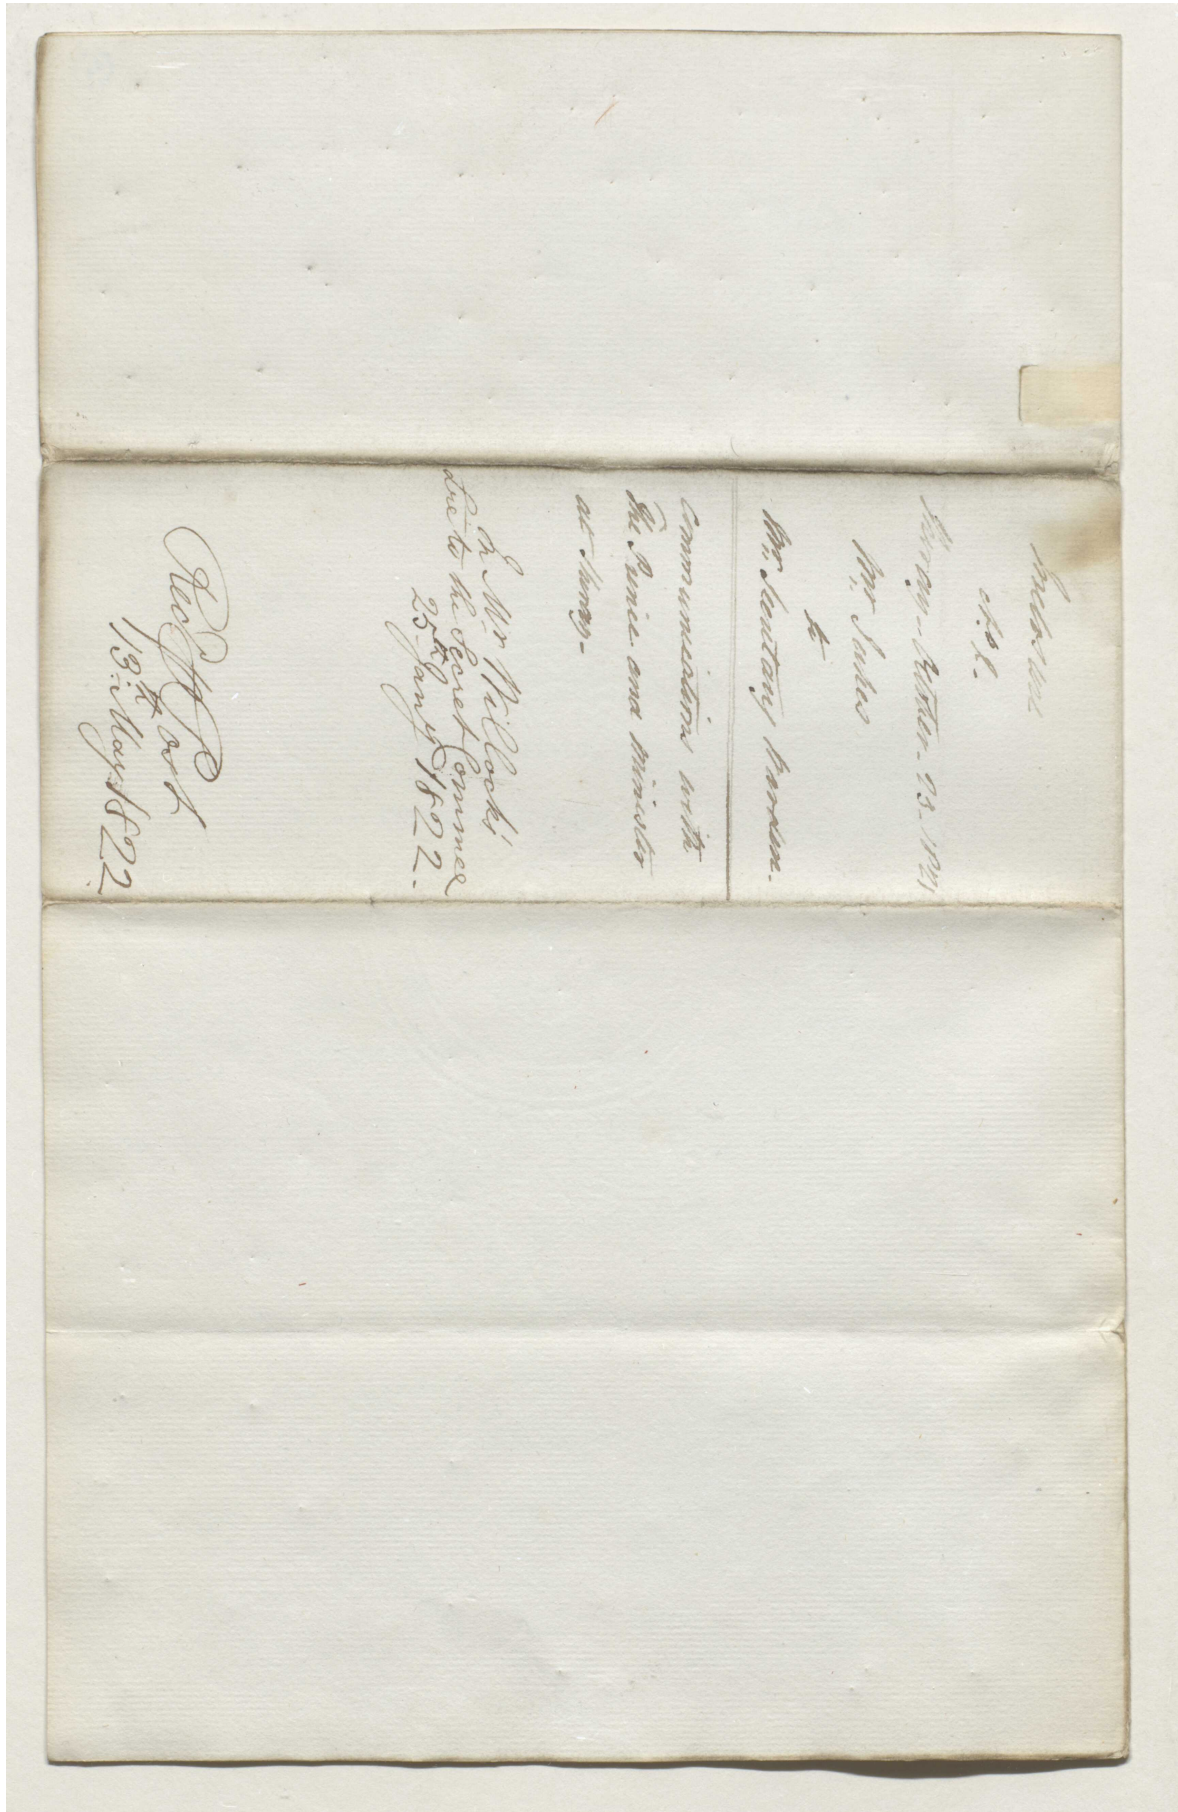 Enclosure
No. 2.
Shiraz - October - 23 - 1821
Mr. Jukes
to
Mr. Secretary Warden.
Communications with
The Prince and minister
at Shiraz -
In Mr Willock's
Lre to the Secret Commee
25th Jany 1822.
Rec
Post
13th May 1822